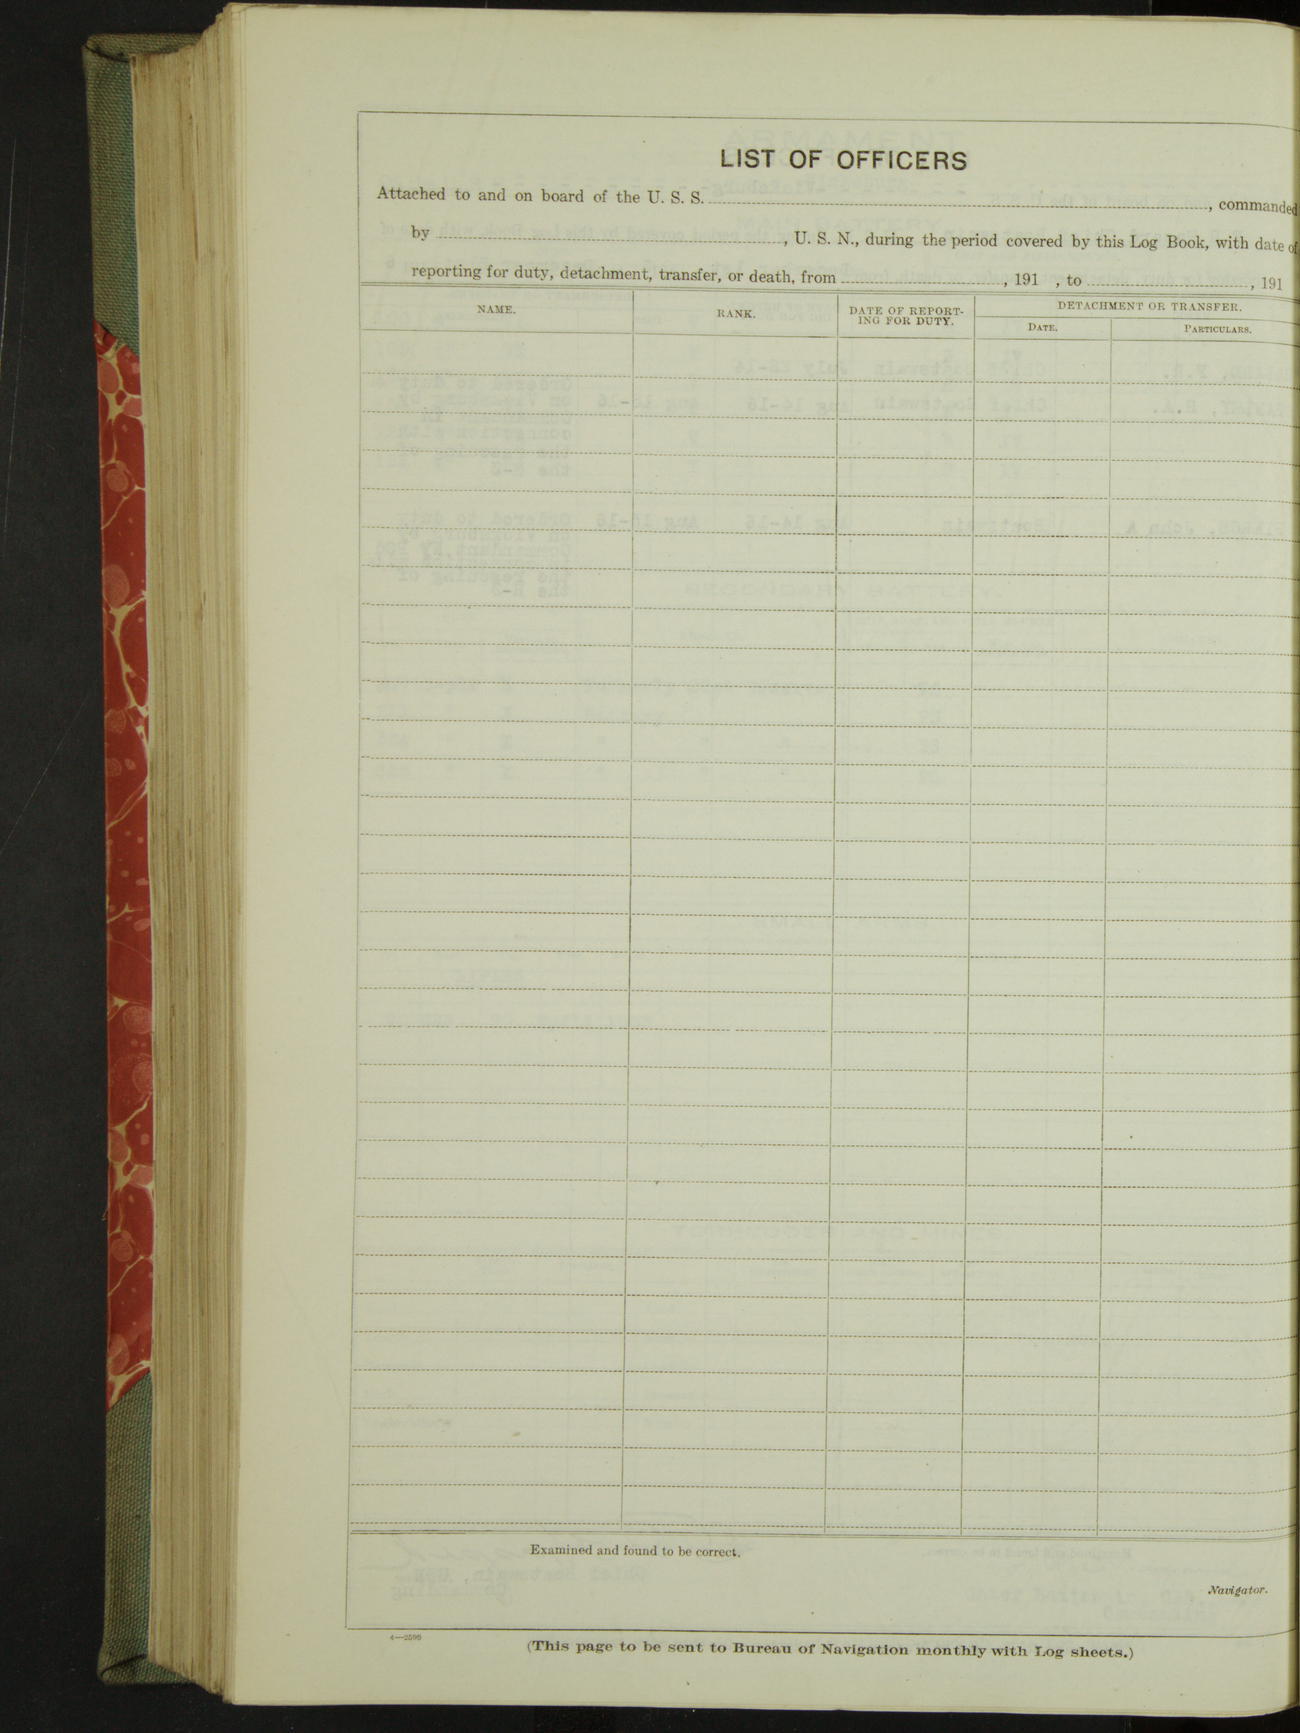 LIST OF OFFICERS
Attached to and on board of the U. S. S. , commanded
by , U. S. N., during the period covered by this Log Book, with date of
reporting for duty, detachment, transfer, or death, from , 191 , to , 191
NAME.
RANK.
DATE OF REPORT-
ING FOR DUTY.
DETACHMENT OR TRANSFER.
DATE.
PARTICULARS.
Examined and found to be correct.
Navigator.
4—2599
(This page to be sent to Bureau of Navigation monthly with Log sheets.)